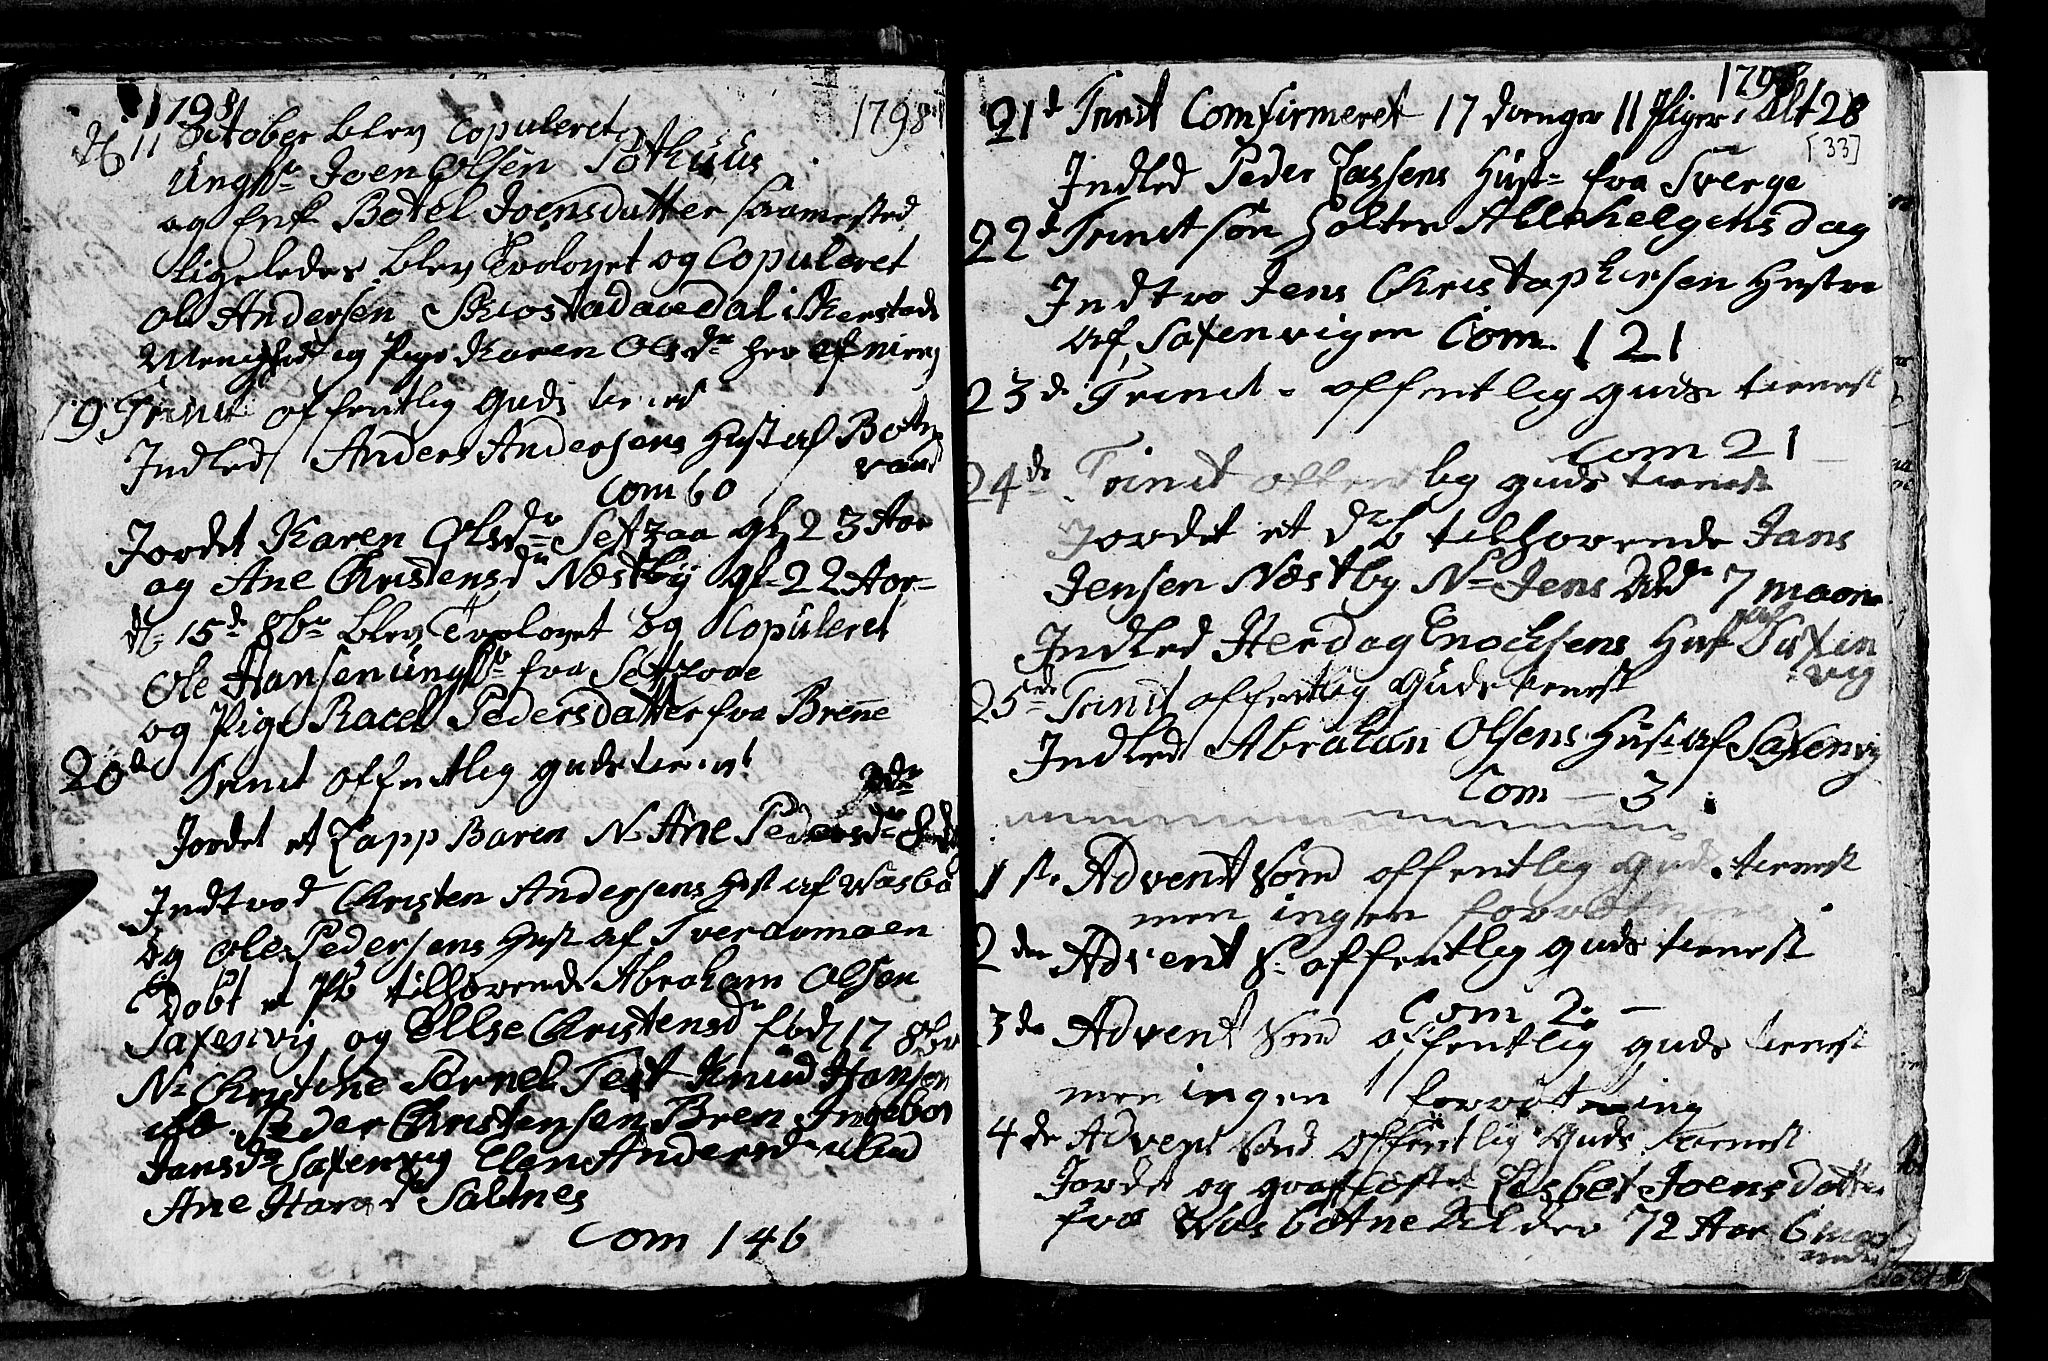 1798
1798
d 11 October blev Copuleret
Ungk Joen Olsen Pothuus
og Enk Botel Joensdatter sammested
ligeledes blev Trolovet og Copuleret
Ole Andersen i Skierstads
Menighed og Pige Karen Olsdr
19 Trinit offentlig guds tienest
Indled Anders Andersens Hust af Botn
vand
Com 60
Jordet Karen Olsdr Setzaa gl 23 Aar
og Ane Christensdr Næstby gl 22 Aar
d 15de 8br blev Trolovet og Copuleret
Ole Hansen ungk fra Setzaae
og Pige Racel Pedersdatter fra Brenne
20de Trinit offentlig guds tienest
Jordet et Lapp Baren N Ane Pedersdr
Indtroed Christen Andersens Hust af Wasbo
og Ole Pedersens Hust af Tveraamoen
Døbt et Pb tilhørende Abraham Olsen
Saxenvig og Ellse Christensdr fød 17 8br
N Christine Pernel Test Knud Hansen
Peder Christensen Bren Ingebor
Jansdr Saxenvig Elen Andersdr
Ane Hansdr Saltnes
Com 146
1798
21d Trinit Comfirmeret 17 drenge 11 Piger i Alt 28
[33]
Indled Peder Lassens Hust fra Sverge
22d Trinit søn holten Allehelgensdag
Indtro Jens Christophersen Hustro
af Saxenvigen Com 121
23de Trinit offentlig guds tienest
Com 21
24de Trinit offentlig guds tienest
Jordet et db tilhørende Jans
Jensen Næstby N Jens Ald 7 maane
Indled Herdag Enochsens Hust af Saxen
vig
25de Trinit offentlig Guds tienest
Indled Abraham Olsens Hust af Saxenvig
Com 3
1ste Advent Sønd offentlig guds tienest
men ingen forretning
2den Advent S offentlig guds tienest
Com 2
3de Advent Sønd offentlig guds tienest
men ingen forretning
4de Advent Sønd offentlig Guds tienest
Jordet og graffæstet Lisbet Joensdatter
fra Wasbotne Alder 72 Aar 6 maa
neder